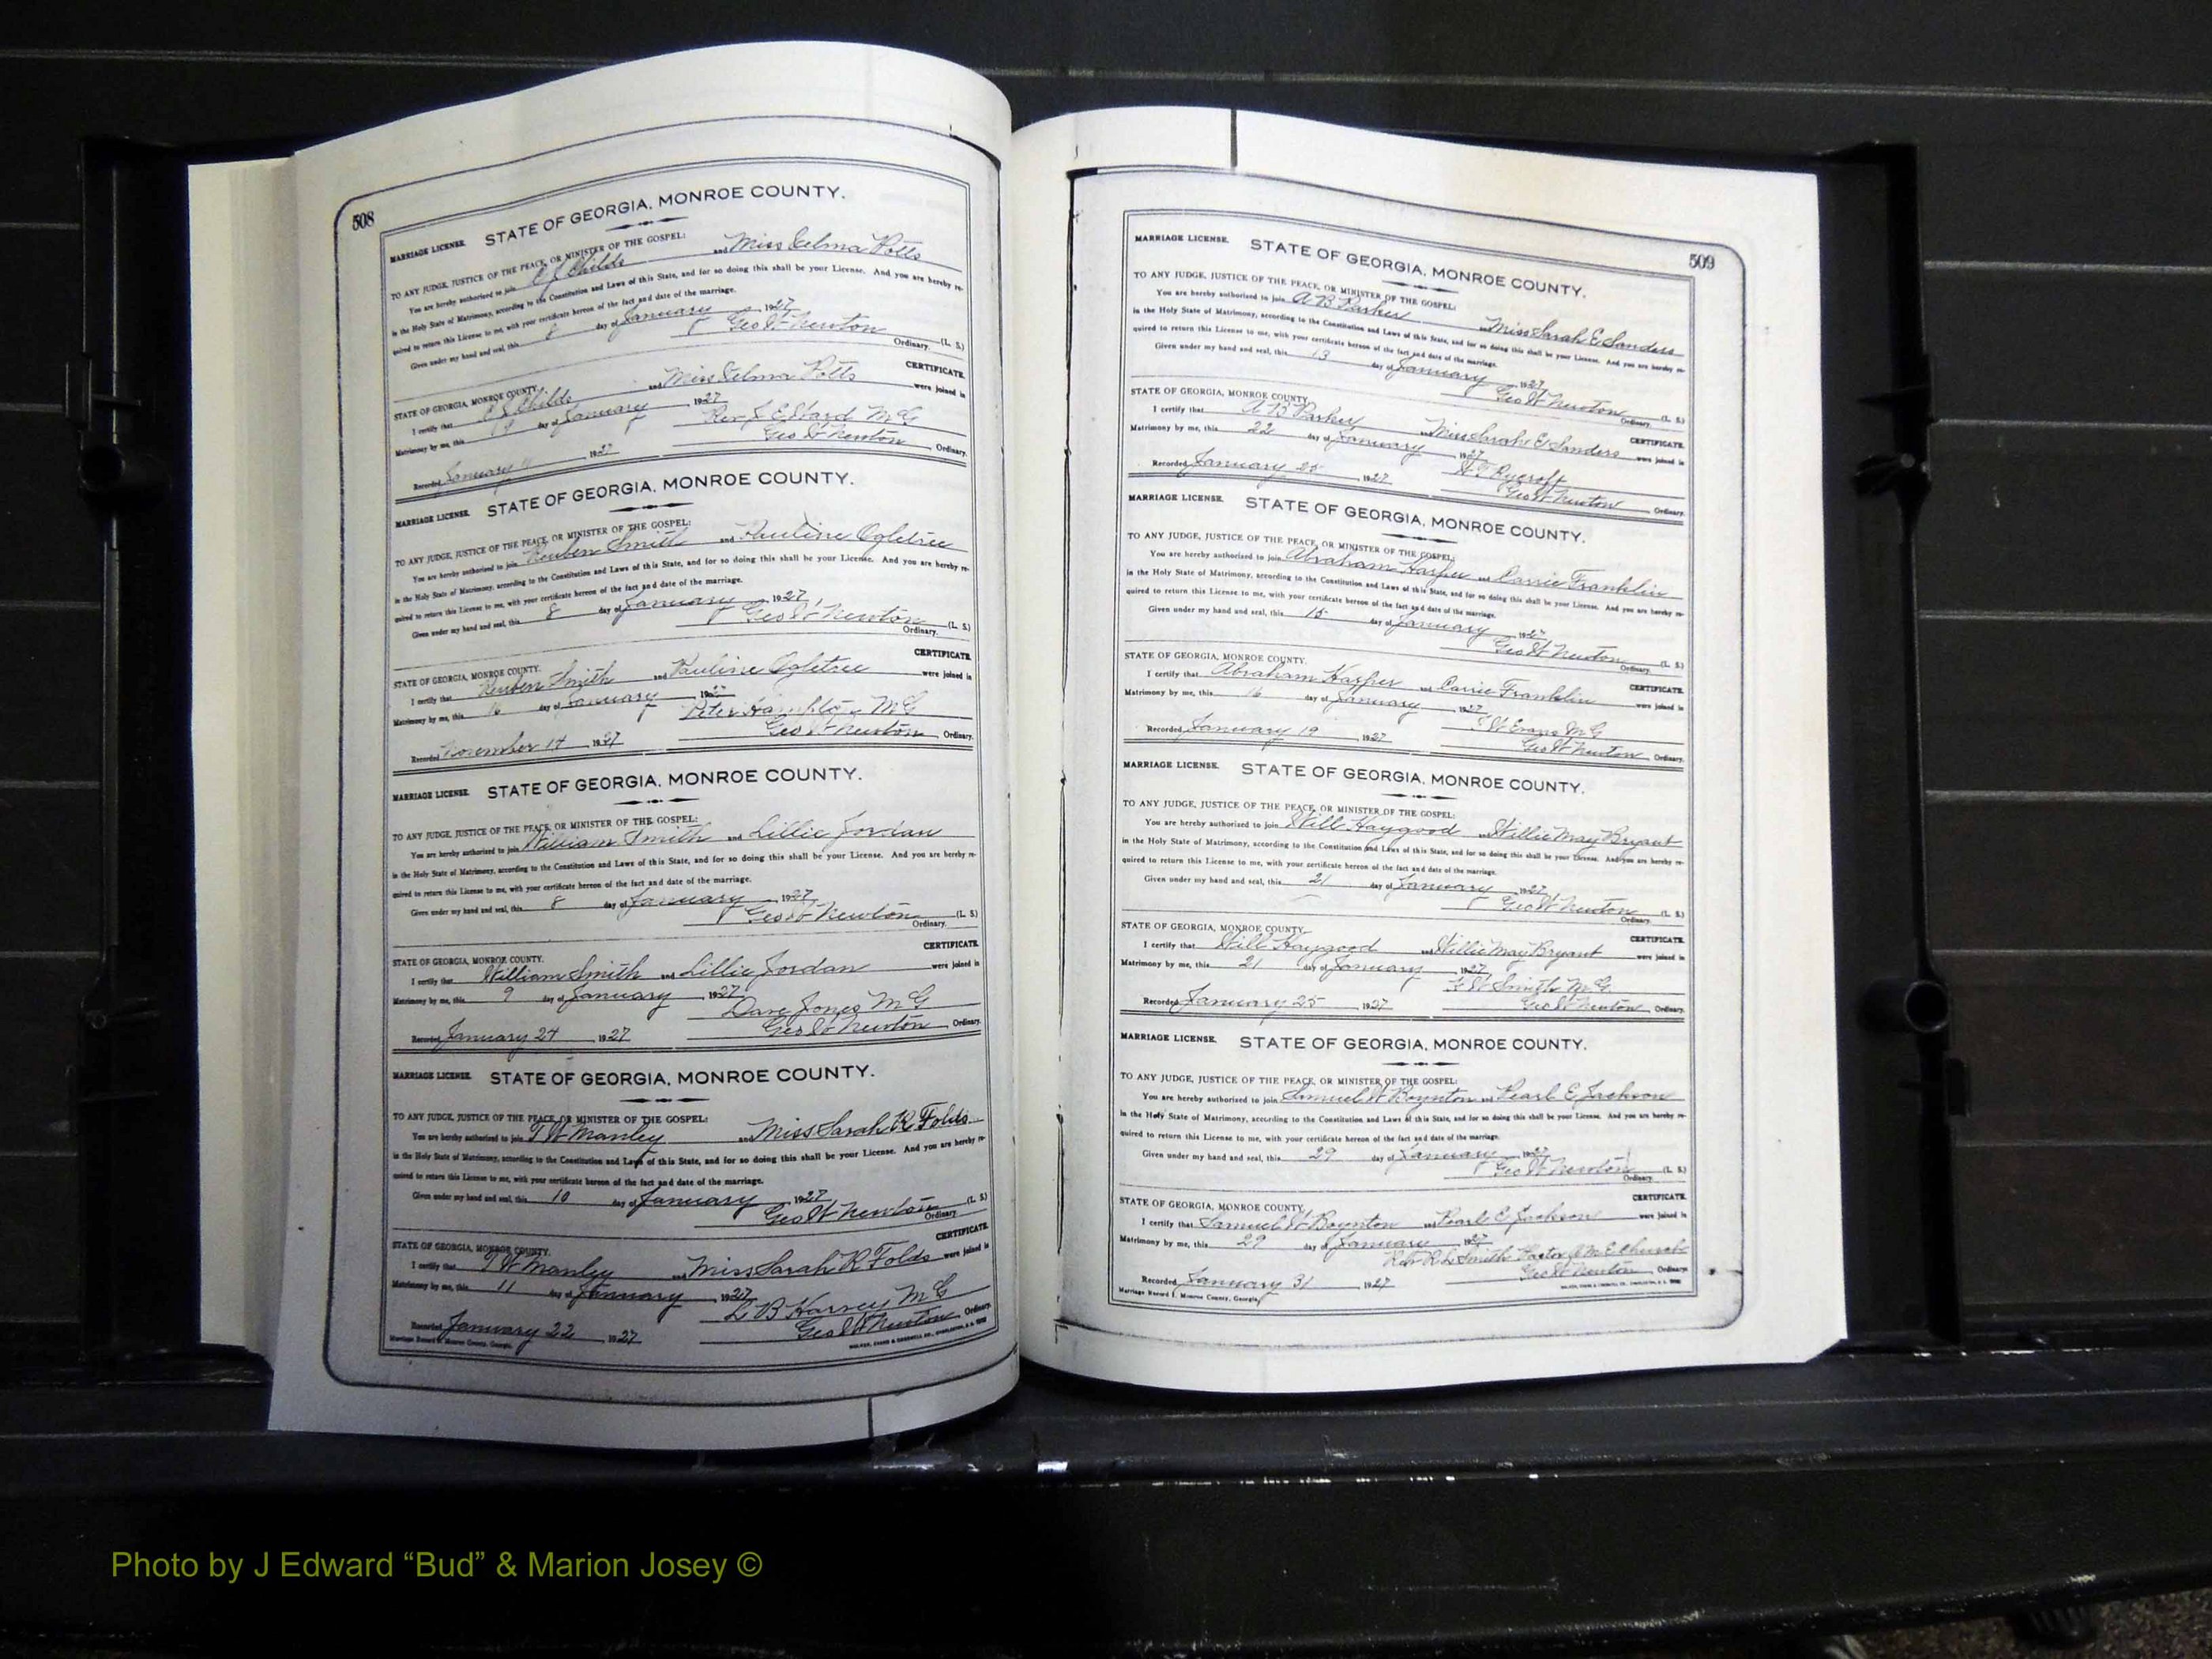 508
MARRIAGE LICENSE. STATE OF GEORGIA, MONROE COUNTY.
TO ANY JUDGE, JUSTICE OF THE PEACE, OR MINISTER OF THE GOSPEL:
You are hereby authorized to join C J Childs and Miss Potts
in the Holy State of Matrimony, according to the Constitution and Laws of this State, and for so doing this shall be your License. And you are hereby re-
quired to return this License to me, with your certificate hereon of the fact and date of the marriage.
Given under my hand and seal, this 8 day of January 1927
Geo W Newton (L. S.)
Ordinary.
CERTIFICATE
STATE OF GEORGIA, MONROE COUNTY.
I certify that C J Childs and Miss Potts were joined in
Matrimony by me, this day of January 1927
Rev J E Ward M G
Geo W Newton Ordinary.
Recorded January 1927
MARRIAGE LICENSE. STATE OF GEORGIA, MONROE COUNTY.
TO ANY JUDGE, JUSTICE OF THE PEACE, OR MINISTER OF THE GOSPEL:
You are hereby authorized to join Reuben Smith and Pauline Ogletree
in the Holy State of Matrimony, according to the Constitution and Laws of this State, and for so doing this shall be your License. And you are hereby re-
quired to return this License to me, with your certificate hereon of the fact and date of the marriage.
Given under my hand and seal, this 8 day of January 1927
Geo W Newton (L. S.)
Ordinary.
CERTIFICATE
STATE OF GEORGIA, MONROE COUNTY.
I certify that Reuben Smith and Pauline Ogletree were joined in
Matrimony by me, this 16 day of January 1927
Peter Hampton M G
Geo W Newton Ordinary.
Recorded November 14 1927
MARRIAGE LICENSE. STATE OF GEORGIA, MONROE COUNTY.
TO ANY JUDGE, JUSTICE OF THE PEACE, OR MINISTER OF THE GOSPEL:
You are hereby authorized to join William Smith and Lillie Jordan
in the Holy State of Matrimony, according to the Constitution and Laws of this State, and for so doing this shall be your License. And you are hereby re-
quired to return this License to me, with your certificate hereon of the fact and date of the marriage.
Given under my hand and seal, this 8 day of January 1927
Geo W Newton (L. S.)
Ordinary.
CERTIFICATE
STATE OF GEORGIA, MONROE COUNTY.
I certify that William Smith and Lillie Jordan were joined in
Matrimony by me, this 9 day of January, 1927
Dave Jones M G
Geo W Newton Ordinary.
Recorded January 24 1927
MARRIAGE LICENSE. STATE OF GEORGIA, MONROE COUNTY.
TO ANY JUDGE, JUSTICE OF THE PEACE, OR MINISTER OF THE GOSPEL:
You are hereby authorized to join T W Manley and Miss Sarah R Folds
in the Holy State of Matrimony, according to the Constitution and Laws of this State, and for so doing this shall be your License. And you are hereby re-
quired to return this License to me, with your certificate hereon of the fact and date of the marriage.
Given under my hand and seal, this 10 day of January 1927
Geo W Newton (L. S.)
Ordinary.
CERTIFICATE
STATE OF GEORGIA, MONROE COUNTY.
I certify that T W Manley and Miss Sarah R Folds were joined in
Matrimony by me, this 11 day of January, 1927
L B Harvey M G
Geo W Newton Ordinary.
Recorded January 22 1927
Marriage Record Monroe County, Georgia.
509
MARRIAGE LICENSE. STATE OF GEORGIA, MONROE COUNTY.
TO ANY JUDGE, JUSTICE OF THE PEACE, OR MINISTER OF THE GOSPEL:
You are hereby authorized to join A B Parker and Miss Sarah E Sanders
in the Holy State of Matrimony, according to the Constitution and Laws of this State, and for so doing this shall be your License. And you are hereby re-
quired to return this License to me, with your certificate hereon of the fact and date of the marriage.
Given under my hand and seal, this 13 day of January 1927
Geo W Newton (L. S.)
Ordinary.
CERTIFICATE
STATE OF GEORGIA, MONROE COUNTY.
I certify that A B Parker and Miss Sarah E Sanders were joined in
Matrimony by me, this 22 day of January 1927
Geo W Newton Ordinary.
Recorded January 25 1927
MARRIAGE LICENSE. STATE OF GEORGIA, MONROE COUNTY.
TO ANY JUDGE, JUSTICE OF THE PEACE, OR MINISTER OF THE GOSPEL:
You are hereby authorized to join Abraham Harper and Carrie Franklin
in the Holy State of Matrimony, according to the Constitution and Laws of this State, and for so doing this shall be your License. And you are hereby re-
quired to return this License to me, with your certificate hereon of the fact and date of the marriage.
Given under my hand and seal, this 15 day of January 1927
Geo W Newton (L. S.)
Ordinary.
STATE OF GEORGIA, MONROE COUNTY. CERTIFICATE
I certify that Abraham Harper and Carrie Franklin were joined in
Matrimony by me, this 16 day of January 1927
T W Evans M G
Geo W Newton Ordinary.
Recorded January 19 1927
MARRIAGE LICENSE. STATE OF GEORGIA, MONROE COUNTY.
TO ANY JUDGE, JUSTICE OF THE PEACE, OR MINISTER OF THE GOSPEL:
You are hereby authorized to join Will Haygood and Willie May Bryant
in the Holy State of Matrimony, according to the Constitution and Laws of this State, and for so doing this shall be your License. And you are hereby re-
quired to return this License to me, with your certificate hereon of the fact and date of the marriage.
Given under my hand and seal, this 21 day of January 1927
Geo W Newton (L. S.)
Ordinary.
STATE OF GEORGIA, MONROE COUNTY. CERTIFICATE
I certify that Will Haygood and Willie May Bryant were joined in
Matrimony by me, this 21 day of January 1927
W Smith M G
Geo W Newton Ordinary.
Recorded January 25 1927
MARRIAGE LICENSE. STATE OF GEORGIA, MONROE COUNTY.
TO ANY JUDGE, JUSTICE OF THE PEACE, OR MINISTER OF THE GOSPEL:
You are hereby authorized to join Samuel W Boynton and Pearl E Jackson
in the Holy State of Matrimony, according to the Constitution and Laws of this State, and for so doing this shall be your License. And you are hereby re-
quired to return this License to me, with your certificate hereon of the fact and date of the marriage.
Given under my hand and seal, this 29 day of January 1927
Geo W Newton (L. S.)
Ordinary.
CERTIFICATE
STATE OF GEORGIA, MONROE COUNTY.
I certify that Samuel W Boynton and Pearl E Jackson were joined in
Matrimony by me, this 29 day of January 1927
Rev R L Smith Pastor A M E Church
Geo W Newton Ordinary.
Recorded January 31 1927
Marriage Record I, Monroe County, Georgia.
Photo by J Edward “Bud” & Marion Josey ©